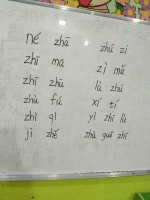 né zhā
zhū zi
zhī ma
zì mǔ
zhī zhū
là zhú
zhù fú
xí tí
zhī qì
yì zhī lǜ
jì zhě
zhà guǒ zhī